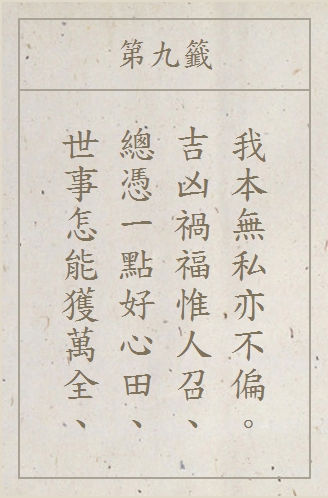 第九籤
世事怎能獲萬全、
總憑一點好心田、
吉凶禍福惟人召、
我本無私亦不偏。